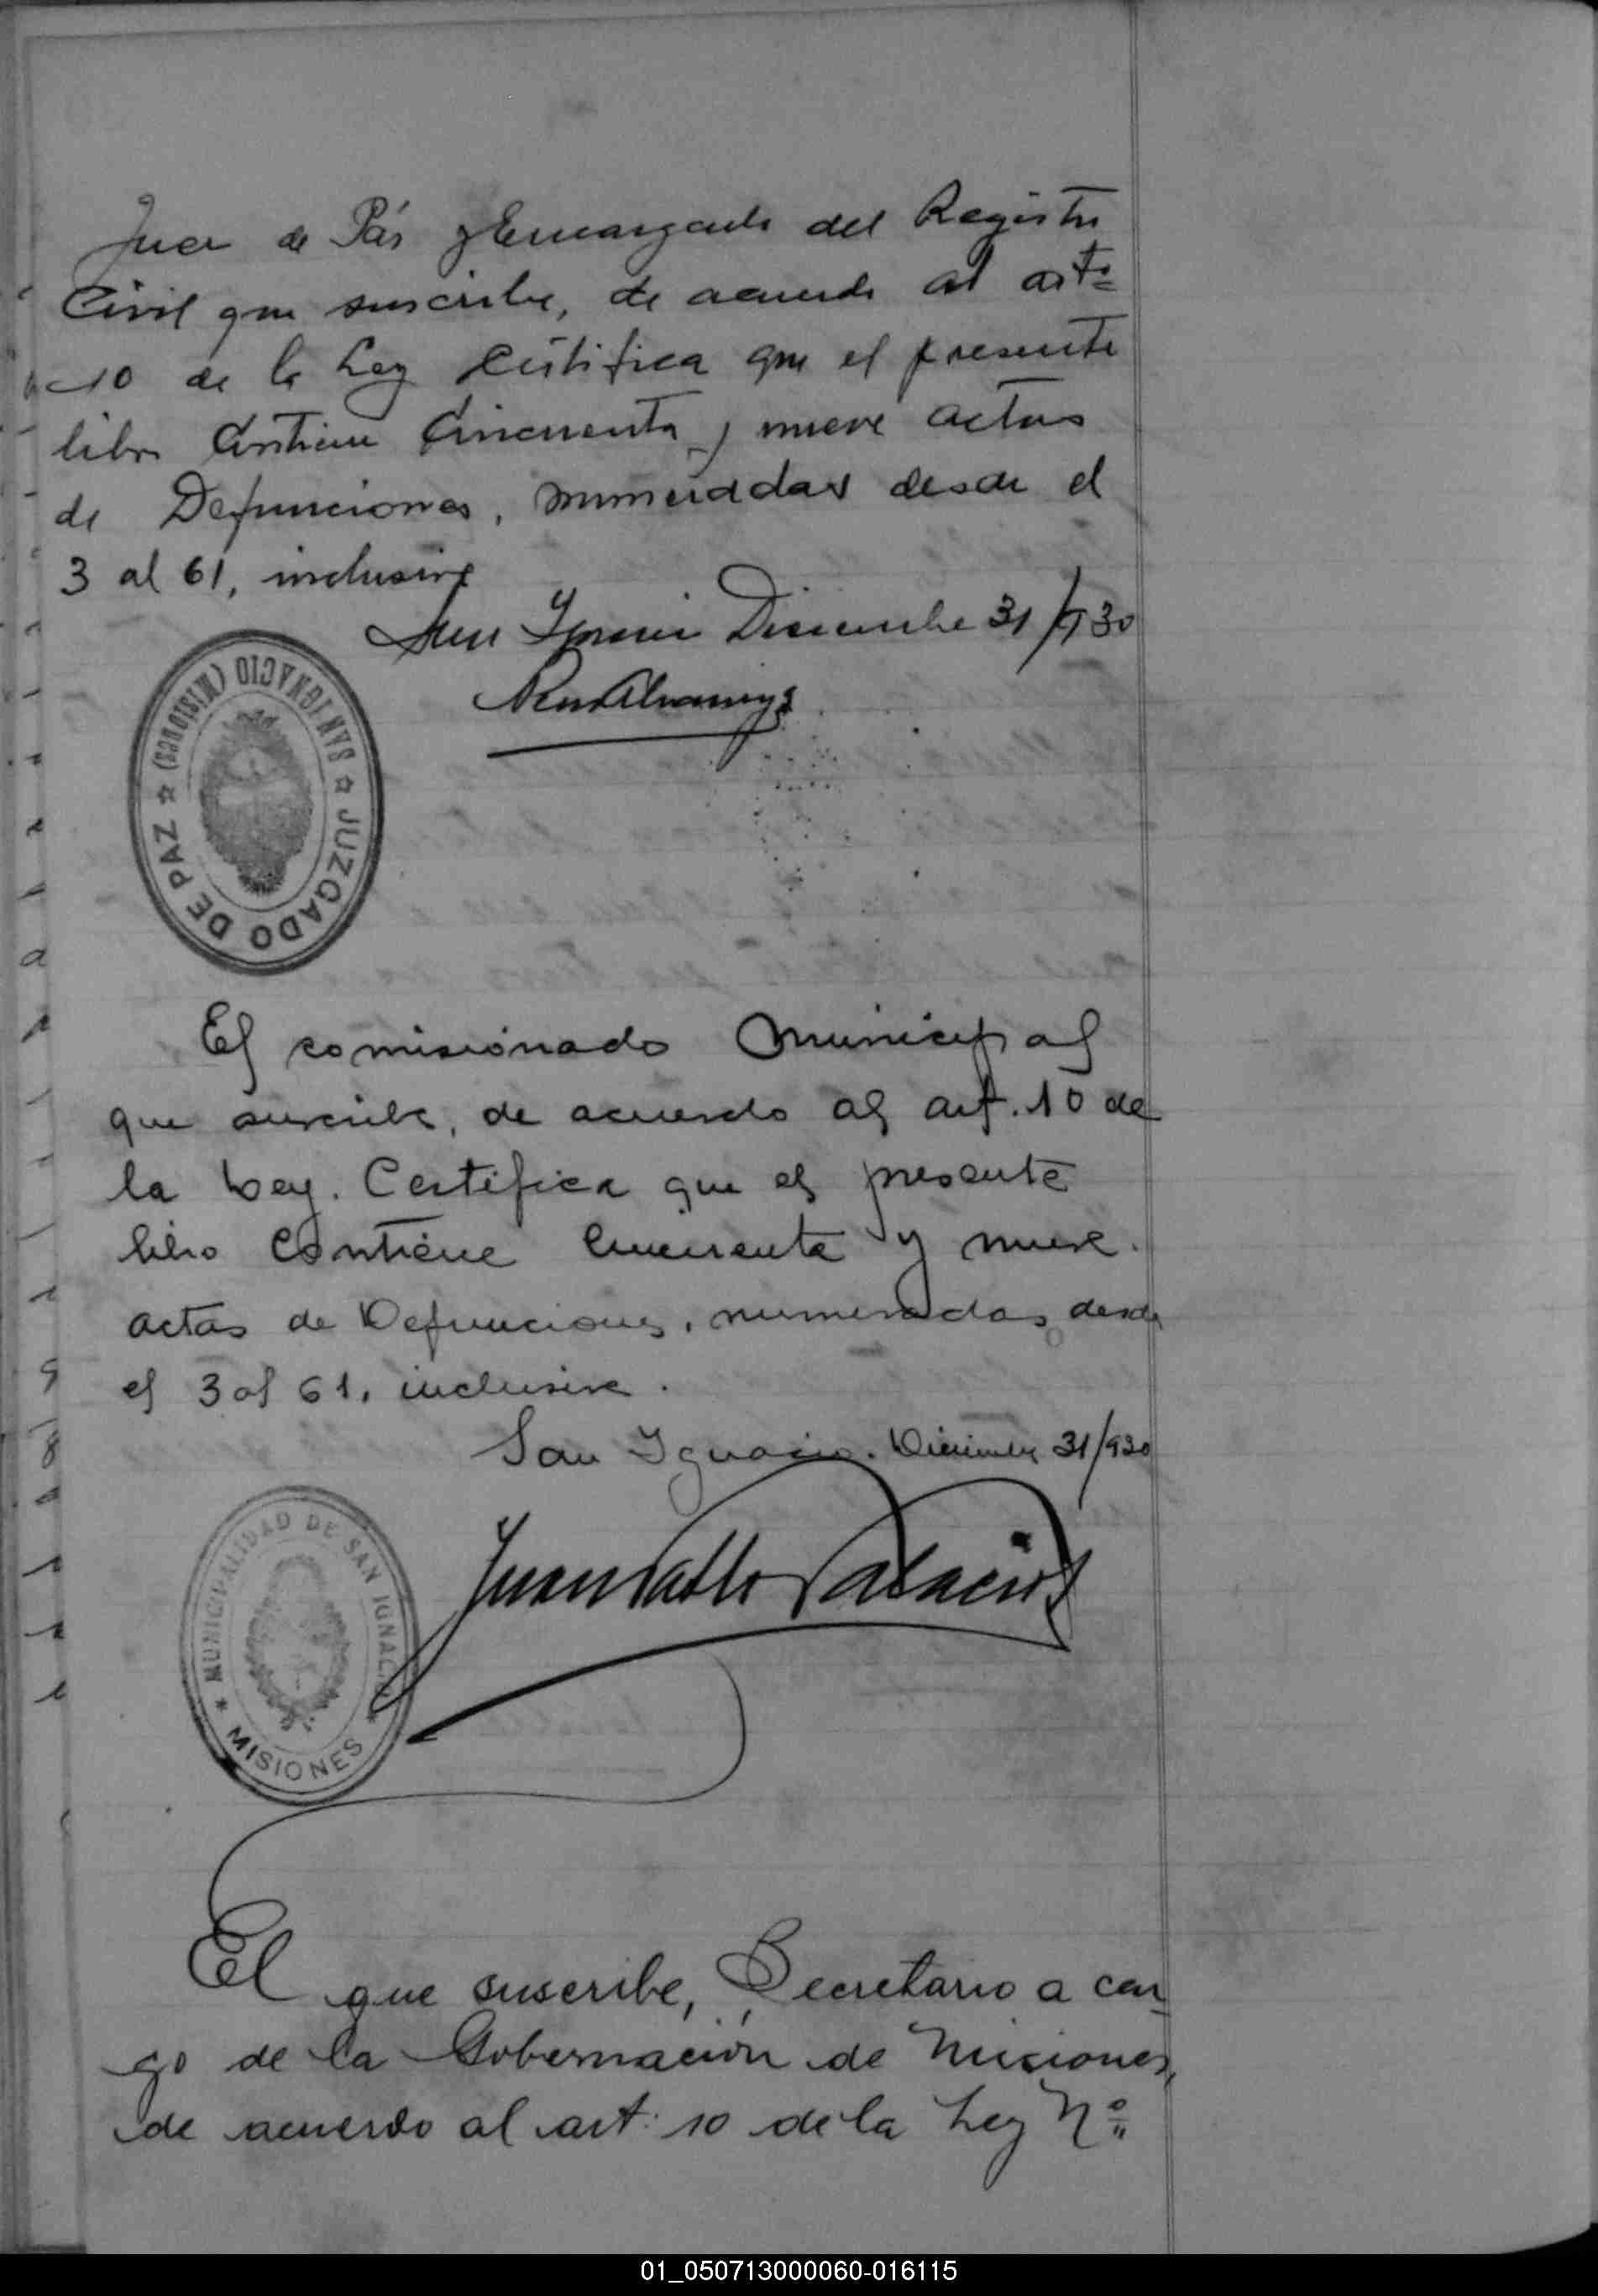 Juez de Páz y Encargado del Registro
Civil que suscribe, de acuerdo al artº
10 de la Ley Certifica que el presente
libro Contiene Cincuenta y nueve actas
de Defunciones, numeradas desde el
3 al 61, inclusive
San Ignacio Diciembre 31/930
JUZGADO DE PAZ ☆ SAN IGNACIO (Misiones) ☆
El comisionado Municipal
que suscribe, de acuerdo al art. 10 de
la Ley. Certifica que el presente
libro contiene cincuenta y nueve.
actas de Defunciones, numeradas desde
el 3 al 61, inclusive.
San Ignacio. Diciembre 31/930
Juan Pablo Palacios
MUNICIPALIDAD DE SAN IGNACIO
* MISIONES *
El que suscribe, Secretario a car-
go de la Gobernación de Misiones,
de acuerdo al art: 10 de la Ley Nº
01_050713000060-016115